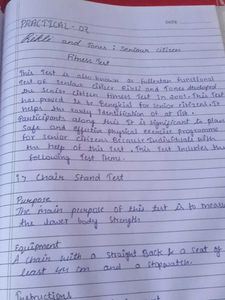 PRACTICAL - 02
DATE
Rikli and Jones : Seniour citizen
Fitness Test
This Test is also known as fullerton functional
Test of Seniour citizen Rikli and Jones developed
the Senior citizen fitness Test in 2001. This Test
has proved to be Benificial for Senior citizens. It
helps the early Identification of at risk
Participants along this. It is significant to plan
Safe and effective physical exercise programme
for Senior citizens Because Individuals with
the help of this test. This Test Includes the
following Test Items.
1. Chair Stand Test
Purpose
The main purpose of this test is to meas
the lower body strength.
Equipment
A chair with a straight Back & a Seat of
least 44 cm and a stopwatch.
Instructions